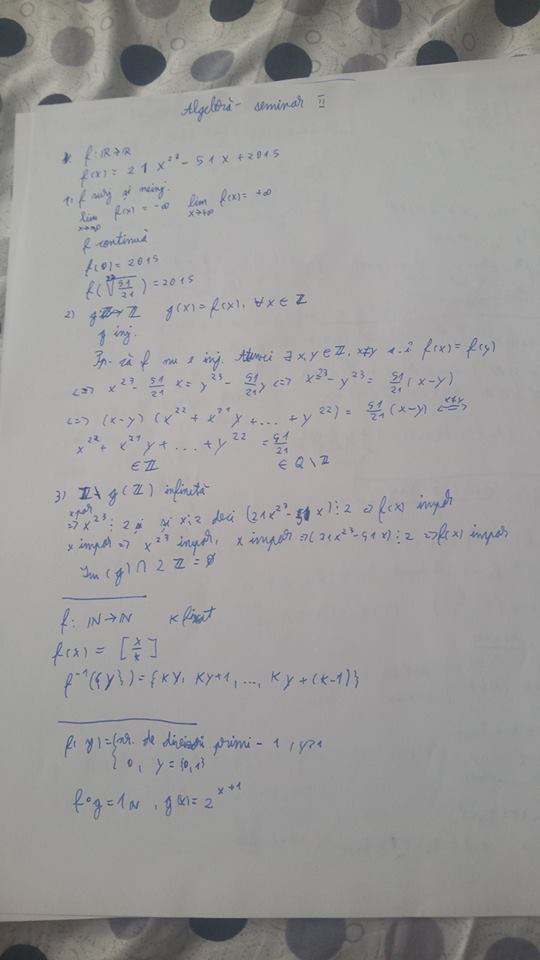 Algebră - seminar II
1. f: ℝ→ℝ
f(x) = 21x²³ - 51x + 2015
1) f surj și neinj.
lim x→-∞ f(x) = -∞ lim x→+∞ f(x) = +∞
f continuă
f(0) = 2015
f(²²√(51/21)) = 2015
2) g: ℤ→ℤ g(x) = f(x), ∀x∈ℤ
g inj.
Pp. că f nu e inj. Atunci ∃ x, y ∈ ℤ, x≠y a.î f(x) = f(y)
<=> x²³ - 51/21 x = y²³ - 51/21 y <=> x²³ - y²³ = 51/21 (x-y)
<=> (x-y) (x²² + x²¹y + ... + y²²) = 51/21 (x-y) <=> x≠y
x²² + x²¹y + ... + y²² = 51/21
∈ ℤ ∈ Q \ ℤ
3) ℤ \ g(ℤ) infinită
x par
=> x²³ ⋮ 2 și x ⋮ 2 deci (21x²³ - 51x) ⋮ 2 => f(x) impar
x impar => x²³ impar, x impar => (21x²³ - 51x) ⋮ 2 => f(x) impar
Im(g) ∩ 2ℤ = ∅
f: ℕ→ℕ k fixat
f(x) = [x/k]
f⁻¹({y}) = {ky, ky+1, ..., ky+(k-1)}
f(y) = {nr. de divizori primi - 1, y>1
{0, y = {0,1}
f∘g = 1ℕ, g(x) = 2^(x+1)